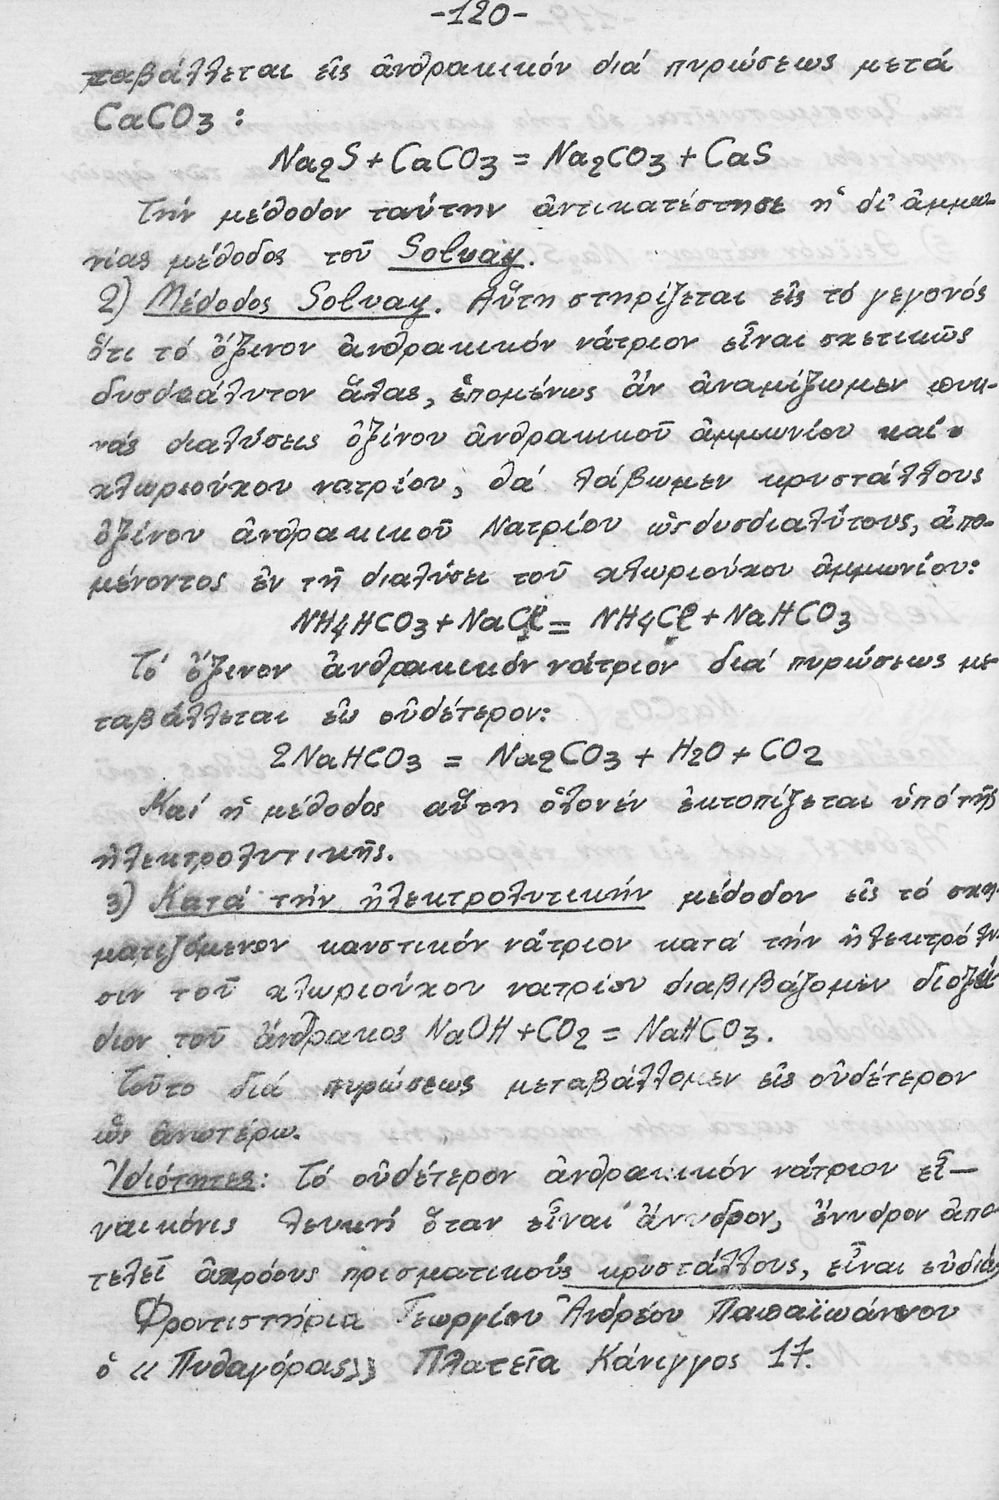 -120-
ταβάλλεται εἰς ἀνθρακικόν διά πυρώσεως μετά
CaCO3 :
Na2S + CaCO3 = Na2CO3 + CaS
Τήν μέθοδον ταύτην ἀντικατέστησε ἡ δι' ἀμμω-
νίας μέθοδος τοῦ Solvay.
2) Μέθοδος Solvay. Αὕτη στηρίζεται εἰς τό γεγονός
ὅτι τό ὄξινον ἀνθρακικόν νάτριον εἶναι σχετικῶς
δυσδιάλυτον ἅλας, ἑπομένως ἄν ἀναμίξωμεν πυκ-
νάς διαλύσεις ὀξίνου ἀνθρακικοῦ ἀμμωνίου καί
χλωριούχου νατρίου, θά λάβωμεν κρυστάλλους
ὀξίνου ἀνθρακικοῦ Νατρίου ὡς δυσδιαλύτους, ἀπο-
μένοντος ἐν τῇ διαλύσει τοῦ χλωριούχου ἀμμωνίου:
NH4HCO3 + NaCl = NH4Cl + NaHCO3
Τό ὄξινον ἀνθρακικόν νάτριον διά πυρώσεως με
ταβάλλεται εἰς οὐδέτερον:
2NaHCO3 = Na2CO3 + H2O + CO2
Καί ἡ μέθοδος αὕτη ὁλονέν ἐκτοπίζεται ὑπό τῆς
ἠλεκτρολυτικῆς.
3) Κατά τήν ἠλεκτρολυτικήν μέθοδον εἰς τό σχη-
ματιζόμενον καυστικόν νάτριον κατά τήν ἠλεκτρόλυ
σιν τοῦ χλωριούχου νατρίου διαβιβάζομεν διοξεί
διον τοῦ ἄνθρακος NaOH + CO2 = NaHCO3.
Τοῦτο διά πυρώσεως μεταβάλλομεν εἰς οὐδέτερον
ὡς ἀνωτέρω.
Ἰδιότητες: Τό οὐδέτερον ἀνθρακικόν νάτριον εἶ-
ναι κόνις λευκή ὅταν εἶναι ἄνυδρον, ἔνυδρον ἀπο
τελεῖ ἀχρόους πρισματικούς κρυστάλλους, εἶναι εὐδιά
Φροντιστήρια Γεωργίου Ἀνδρέου Παπαϊωάννου
ὁ «Πυθαγόρας» Πλατεῖα Κάνιγγος 17.